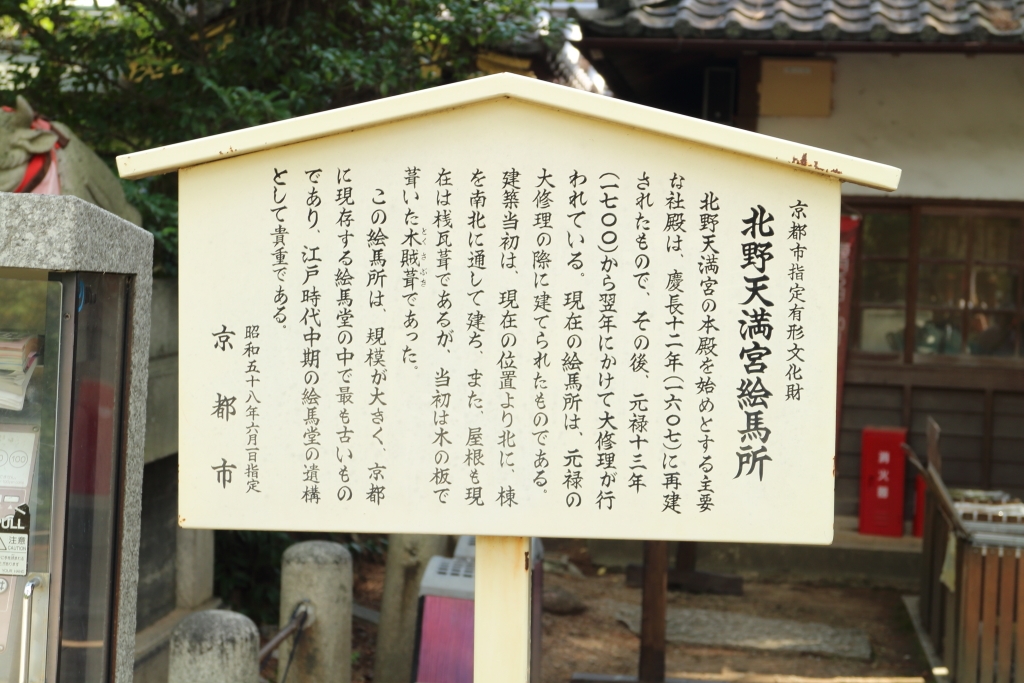 京都市指定有形文化財
北野天満宮絵馬所
北野天満宮の本殿を始めとする主要
な社殿は、慶長十二年(一六〇七)に再建
されたもので、その後、元禄十三年
(一七〇〇)から翌年にかけて大修理が行
われている。現在の絵馬所は、元禄の
大修理の際に建てられたものである。
建築当初は、現在の位置より北に、棟
を南北に通して建ち、また、屋根も現
在は桟瓦葺であるが、当初は木の板で
葺いた木賊葺であった。
とくさぶき
この絵馬所は、規模が大きく、京都
に現存する絵馬堂の中で最も古いもの
であり、江戸時代中期の絵馬堂の遺構
として貴重である。
昭和五十八年六月一日指定
京都市
消火器
PULL
注意